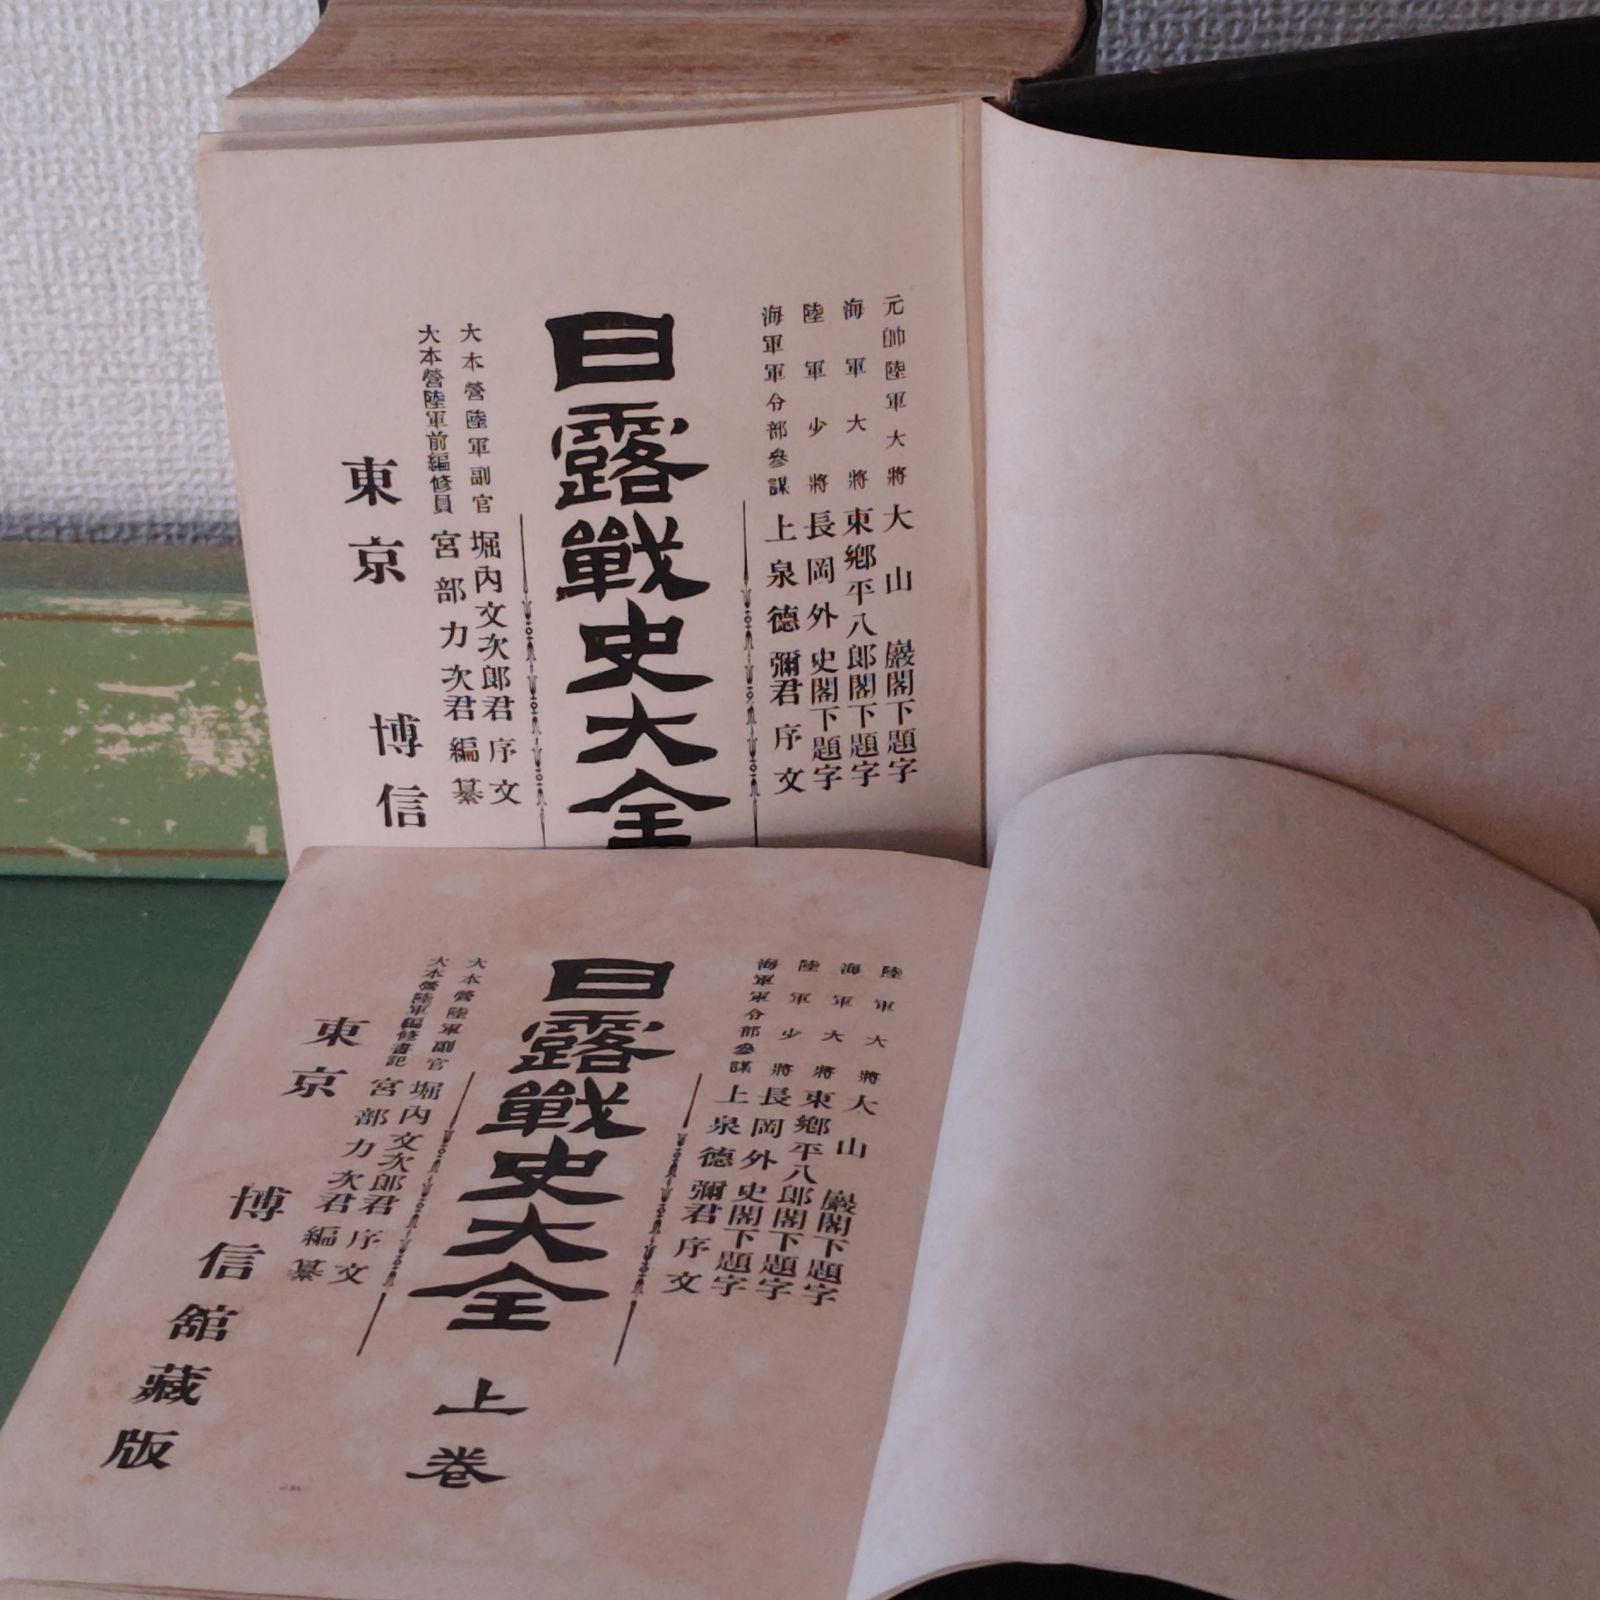 元帥陸軍大將大山巖閣下題字
海軍大將東鄉平八郎閣下題字
陸軍少將長岡外史閣下題字
海軍軍令部參謀上泉德彌君序文
日露戰史大全
大本營陸軍副官堀內文次郎君序文
大本營陸軍前編修員宮部力次君編纂
東京博信
陸軍大將大山巖閣下題字
海軍大將東鄉平八郎閣下題字
陸軍少將長岡外史閣下題字
海軍軍令部參謀上泉德彌君序文
日露戰史大全上卷
大本營陸軍副官堀內文次郎君序文
大本營陸軍編修書記宮部力次君編纂
東京博信舘藏版